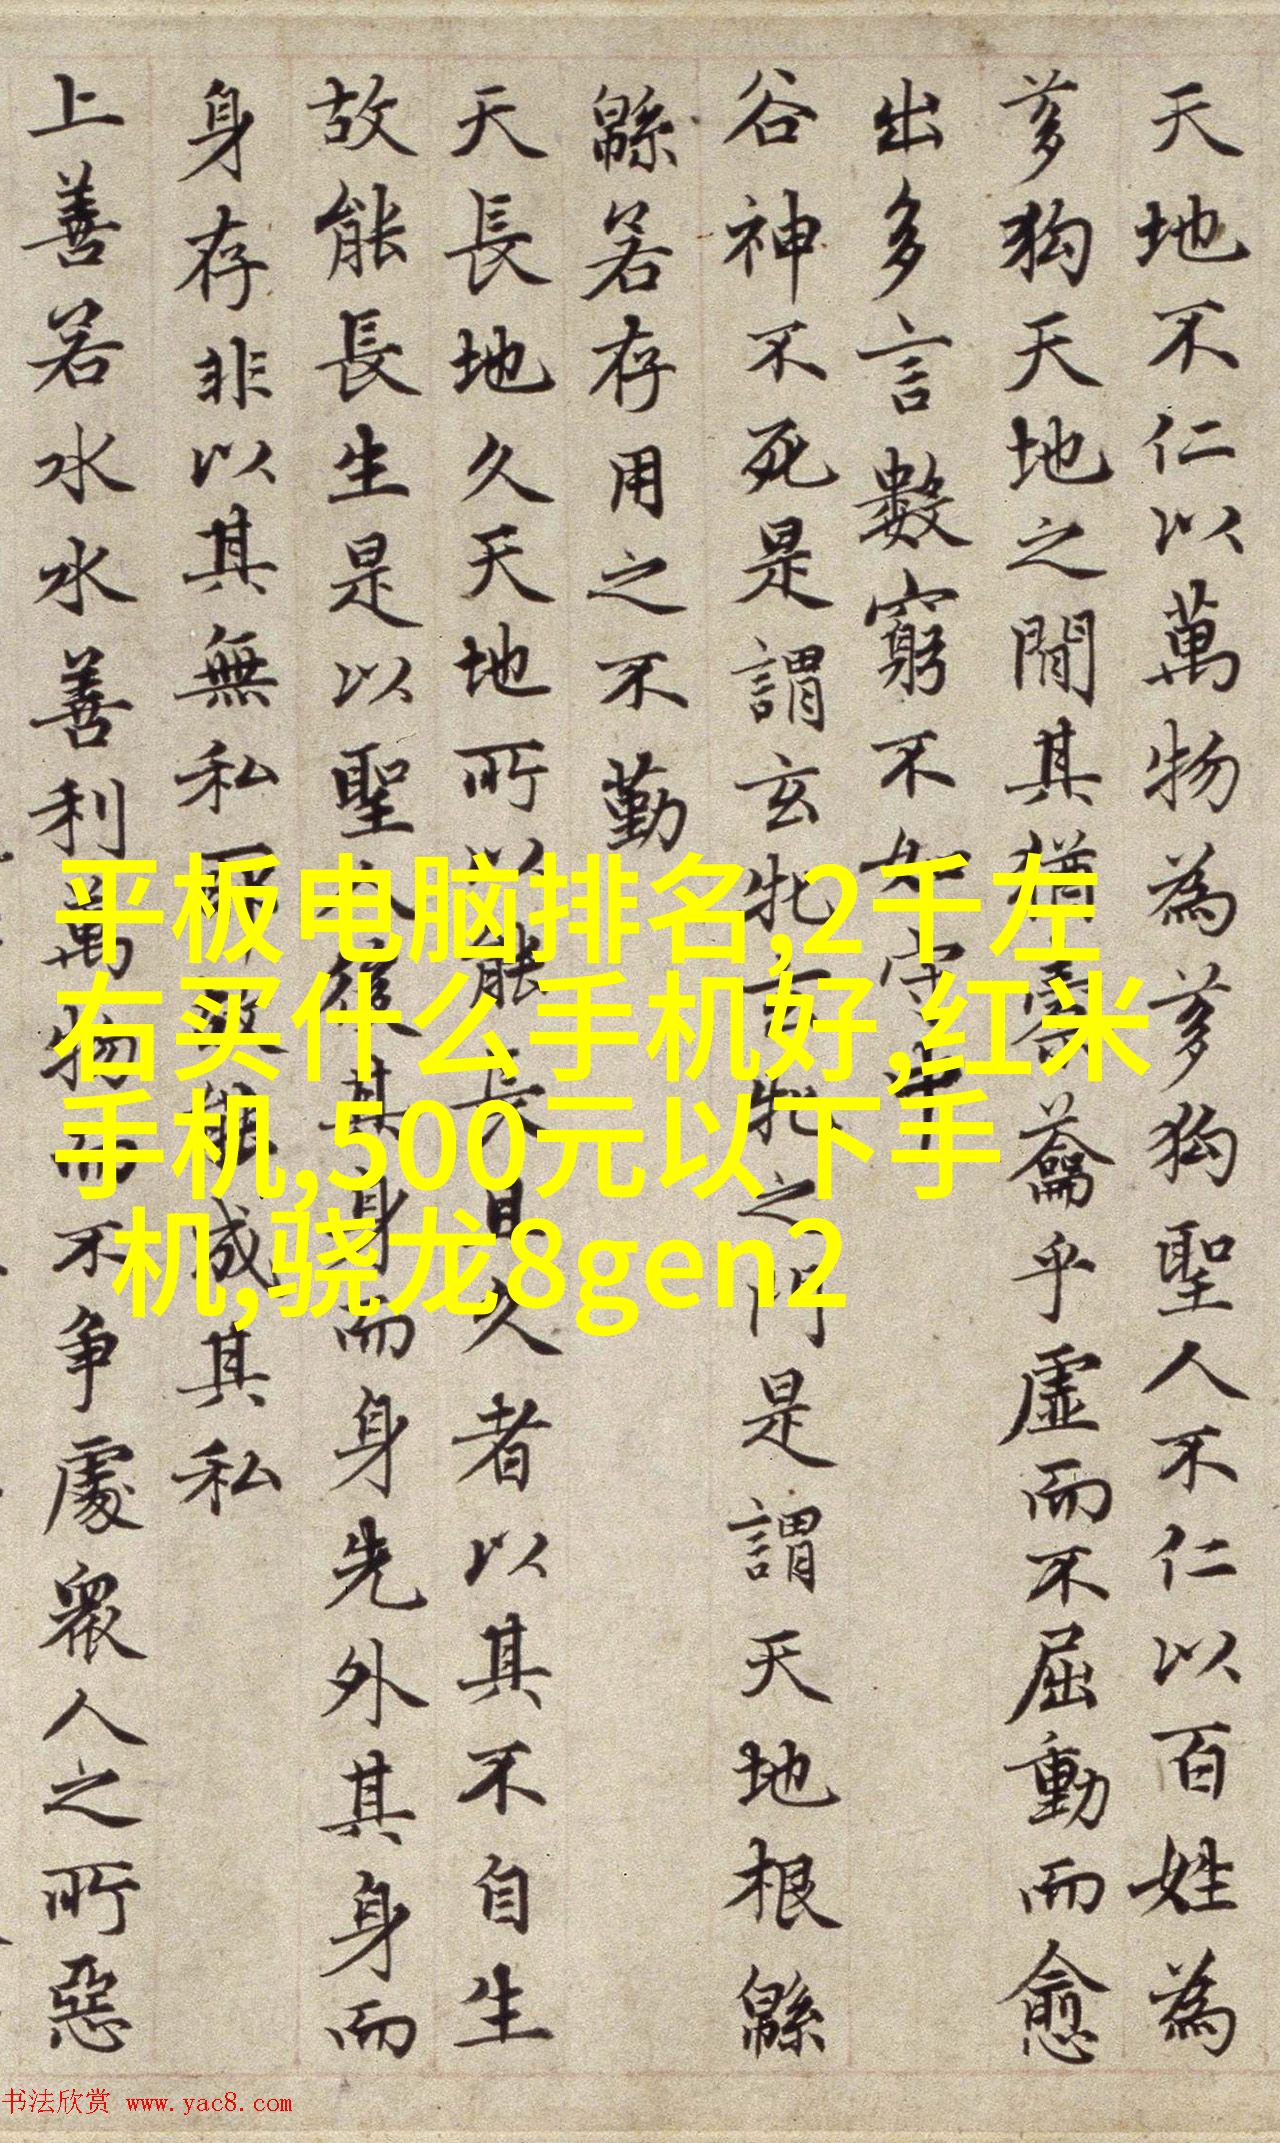 天地不仁以萬物為芻狗聖人不仁以百姓為
芻狗天地之間其猶橐籥乎虛而不屈動而愈
出多言數窮不如守中
谷神不死是謂玄牝玄牝之門是謂天地根緜
緜若存用之不勤
天長地久天地所以能長且久者以其不自生
故能長生是以聖人後其身而身先外其身而
身存非以其無私耶故能成其私
上善若水水善利萬物而不争處衆人之所惡
平板电脑排名,2千左
右买什么手机好,红米
手机,500元以下手
机,骁龙8gen2
书法欣赏 www.yac8.com